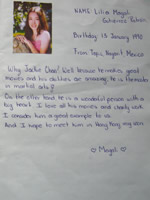 NAME Lilia Magali
Gutierrez
Birthday 13 January 1990
From Tepic, Nayarit Mexico
Why Jackie Chan? Well because he makes great
movies and his abilities are amazing, he is the master
in martial arts!
On the other hand, he is a wonderful person with a
big heart. I love all his movies and charity work
I consider him a good example to us
And I hope to meet him in Hong Kong any day.
Magali